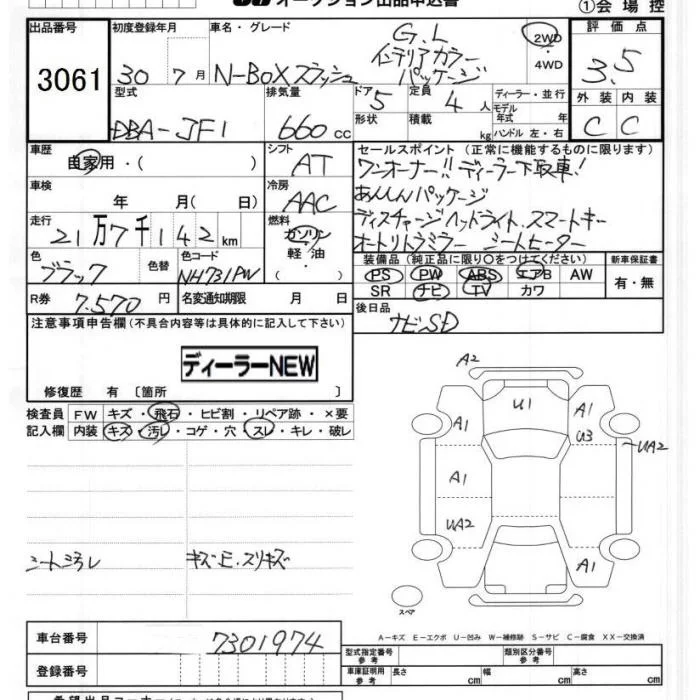 オークション出品申込書
①会場控
出品番号
3061
初度登録年月
30 7月
車名・グレード
N-BOXスラッシュ
G.L
インテリアカラー
パッケージ
2WD
4WD
評価点
3.5
型式
DBA-JF1
排気量
660cc
ドア 5
形状
定員 4人
積載 kg
ディーラー・並行
モデル年式 年
ハンドル 左・右
外装 内装
C C
車歴
自家用・( )
シフト
AT
セールスポイント(正常に機能するものに限ります)
ワンオーナー!!ディーラー下取車!
あんしんパッケージ
ディスチャージヘッドライト、スマートキー
オートリトラミラー シートヒーター
車検
年 月( 日)
冷房
AAC
走行
21万7千142km
燃料
ガソリン
軽油・
( )
色
ブラック
色替
色コード
NH731PW
装備品(純正品に限り○をつけてください)
PS PW ABS エアB AW
SR ナビ TV カワ
新車保証書
有・無
R券 7.570円
名変通知期限 月 日
後日品
ナビSD
注意事項申告欄(不具合内容等は具体的に記入して下さい)
ディーラーNEW
修復歴 有〔箇所 〕
検査員記入欄
FW キズ・飛石・ヒビ割・リペア跡・×要
内装 キズ・汚レ・コゲ・穴・スレ・キレ・破レ
シート汚レ キズE.スリキズ
A2
U1
A1 A1
U3
UA2
A1
UA2
A1
スペア
A-キズ E-エクボ U-凹み W-補修跡 S-サビ C-腐食 XX-交換済
車台番号
7301974
登録番号
型式指定番号 参考
類別区分番号 参考
車庫証明用 参考
長さ cm 幅 cm 高さ cm